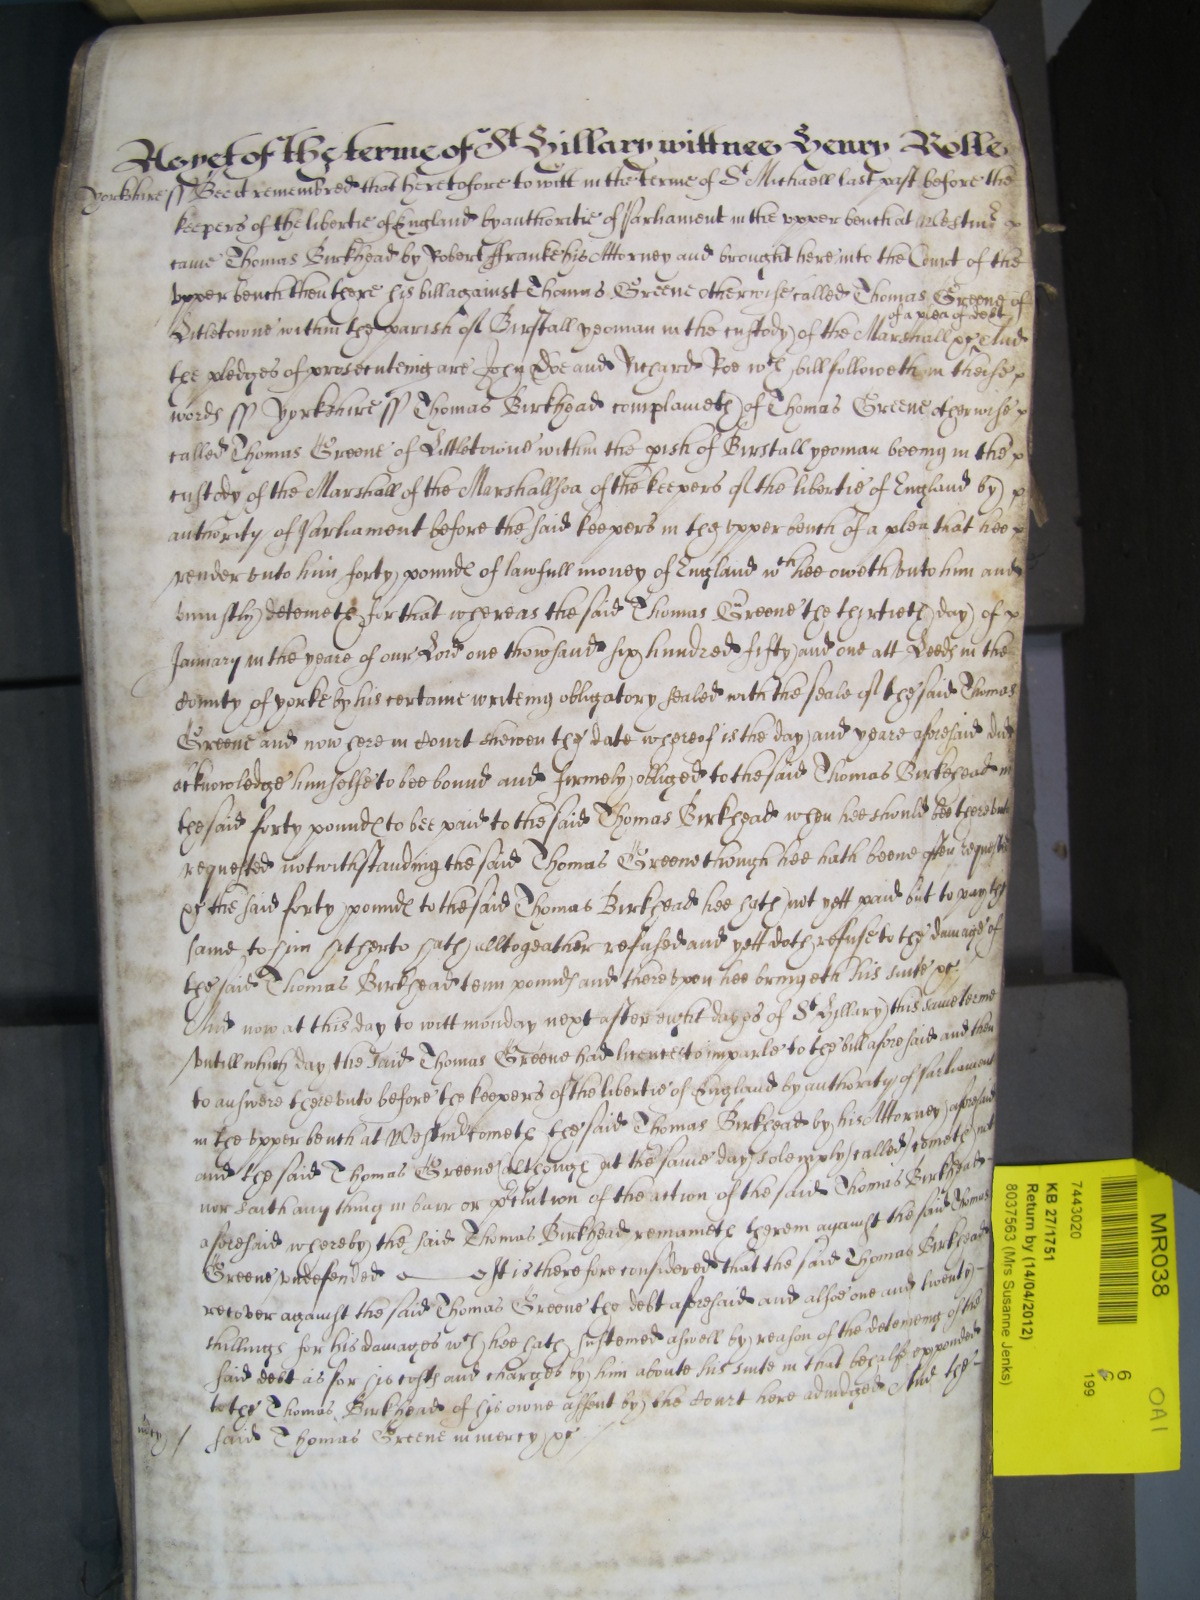 As yet of the terme of St Hillary wittnes Henry Rolle
Yorkshire ss Bee it remembred that heretofore to witt in the terme of St Michaell last past before the
keepers of the libertie of England by authoritie of Parliament in the upper bench at Westmr
came Thomas Birkhead by Robert ffranke his Attorney and brought here into the Court of the
upper bench then there his bill against Thomas Greene otherwise called Thomas Greene of
of a plea of debt
Litletowne within the parish of Birstall yeoman in the custody of the Marshall &c And
the pledges of prosecuteing are John Doe and Richard Roe wch bill followeth in theise
words ss Yorkshire ss Thomas Birkhead complaineth of Thomas Greene otherwise
called Thomas Greene of Litletowne within the pish of Birstall yeoman beeing in the
custody of the Marshall of the Marshallsea of the keepers of the libertie of England by
authority of Parliament before the said keepers in the upper bench of a plea that hee
render unto him forty pounds of lawfull money of England wch hee oweth unto him and
uniustly deteineth for that whereas the said Thomas Greene the thirtieth day of
January in the yeare of our Lord one thowsand six hundred fifty and one att Leeds in the
County of yorke by his certaine writeing obligatory sealed with the seale of the said Thomas
Greene and now here in Court shewen the date whereof is the day and yeare aforesaid did
acknowledge himselfe to bee bound and firmely obliged to the said Thomas Birkhead in
the said forty pounds to bee paid to the said Thomas Birkhead when hee should bee thereunto
requested notwithstanding the said Thomas Greene though hee hath beene often requested
&c the said forty pounds to the said Thomas Birkhead hee hath not yett paid but to pay the
same to him hitherto hath alltogeather refused and yett doth refuse to the damage of
the said Thomas Birkhead tenn pounds and thereupon hee bringeth his suite &c
And now at this day to witt monday next after eight dayes of St Hillary this same terme
untill which day the said Thomas Greene had licence to imparle to the bill aforesaid and then
to answere thereunto before the keepers of the libertie of England by authority of Parliament
in the upper bench at Westmr cometh the said Thomas Birkhead by his Attorney aforesaid
and the said Thomas Greene although at the same day solemply called cometh not
nor saith any thing in barr or pclution of the action of the said Thomas Birkhead
aforesaid whereby the said Thomas Birkhead remaineth therein against the said Thomas
Greene undefended It is therefore considered that the said Thomas Birkhead
recover against the said Thomas Greene the debt aforesaid and alsoe one and twenty
shillings for his damages wch hee hath susteined aswell by reason of the deteineing of the
said debt as for his costs and charges by him aboute his suite in that behalfe expended
to the Thomas Birkhead of his owne assent by the Court here adiudged And the
said Thomas Greene in mercy &c
mercy
MR038
OA1
6
6
199
7443020
KB 27/1751
Return by (14/04/2012)
8037563 (Mrs Susanne Jenks)